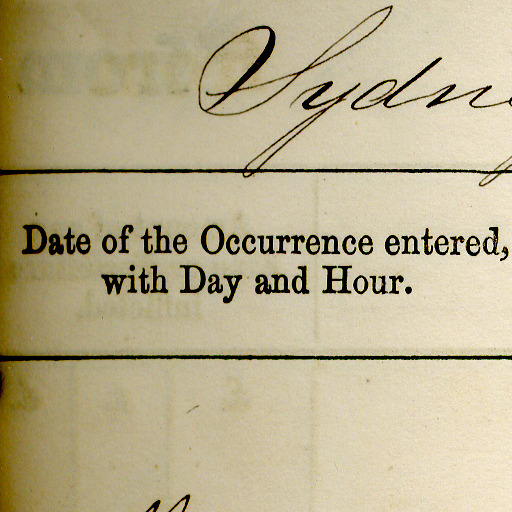 Sydney
Date of the Occurrence entered,
with Day and Hour.